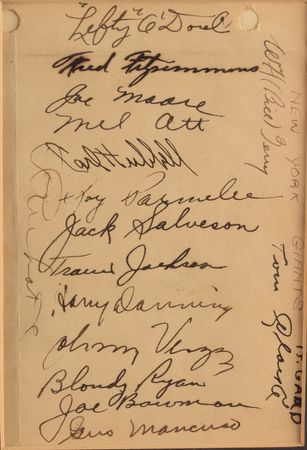 "Lefty" O'Doul
Fred Fitzsimmons
Joe Moore
Mel Ott
Carl Hubbell
Roy Parmelee
Jack Salveson
Travis Jackson
Harry Danning
Johnny Vergez
Blondy Ryan
Joe Bowman
Gus Mancuso
W H (Bill) Terry
NEW YORK GIANTS
Tom Clarke